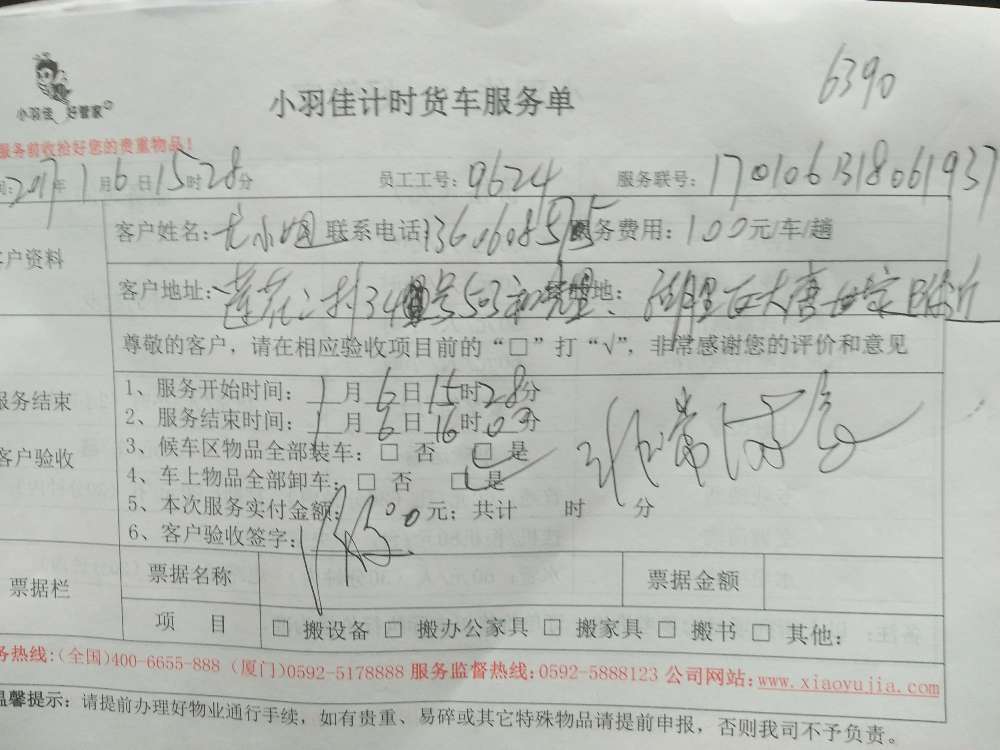 6390
小羽佳 好管家
小羽佳计时货车服务单
服务前收拾好您的贵重物品！
间:2017年1月6日15时28分 员工工号:9624 服务联号:1701061318061937
客户资料
客户姓名: 小姐 联系电话 服务费用:100元/车/趟
客户地址: 莲花 号503 地: 湖里区大唐世家附近
尊敬的客户，请在相应验收项目前的“□”打“√”，非常感谢您的评价和意见
服务结束
客户验收
1、服务开始时间: 1月6日15时28分
2、服务结束时间: 1月6日16时03分
3、候车区物品全部装车: □ 否 □ 是
4、车上物品全部卸车: □ 否 □ 是
非常满意
5、本次服务实付金额: 元; 共计 时 分
6、客户验收签字:
票据栏
票据名称 票据金额
项 目 □ 搬设备 □ 搬办公家具 □ 搬家具 □ 搬书 □ 其他:
务热线:(全国)400-6655-888 (厦门)0592-5178888 服务监督热线:0592-5888123 公司网站:www.xiaoyujia.com
温馨提示: 请提前办理好物业通行手续，如有贵重、易碎或其它特殊物品请提前申报，否则我司不予负责。